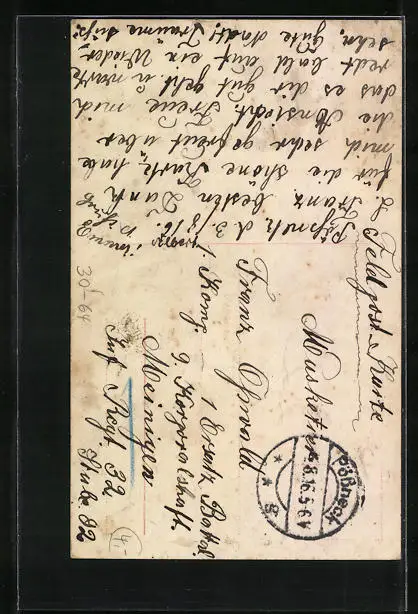 Feldpost-Karte
Musketier
Franz Oswald
1. Komp. 1 Ersatz Batt.
9. Korporalschaft
Meiningen
Inf. Regt. 32
Stube 82
Pößneck
8.16.5-6N
Pößneck, d. 3. 8. 16.
L. Franz. besten Dank
für die schöne Karte, habe
mich sehr gefreut über
die Ansicht. Freue mich
das es dir gut geht. u. warte
recht bald auf ein Wieder-
sehn, gute Nacht, Träume süß
30/-64